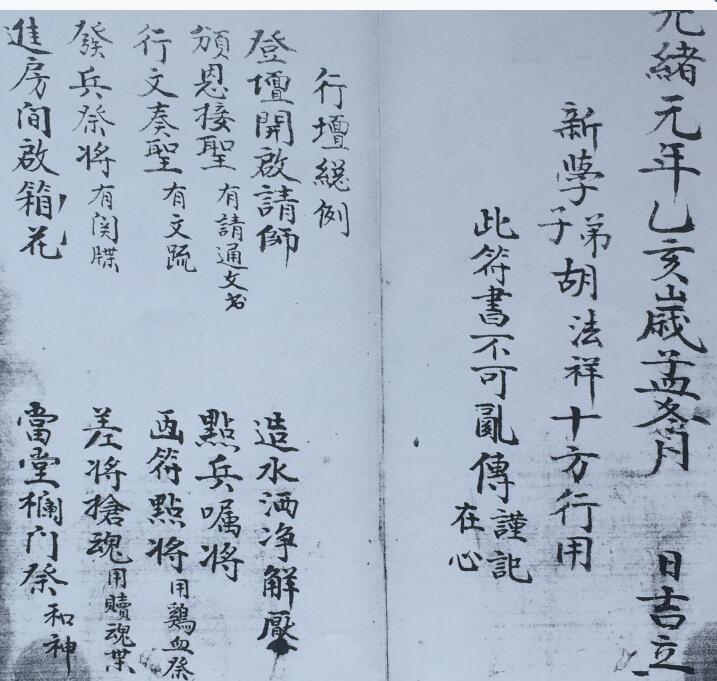 光緒元年乙亥歲孟冬月 日吉立
新學弟子胡法祥十方行用
此符書不可亂傳謹記在心
行壇總例
登壇開啟請師 造水洒净解厭
頒恩接聖有請通文书 點兵嘱将
行文奏聖有文疏 画符點将用鷄血祭
發兵祭将有関牒 差将搶魂用贖魂業
進房间啟箱花 當堂欄门祭和神